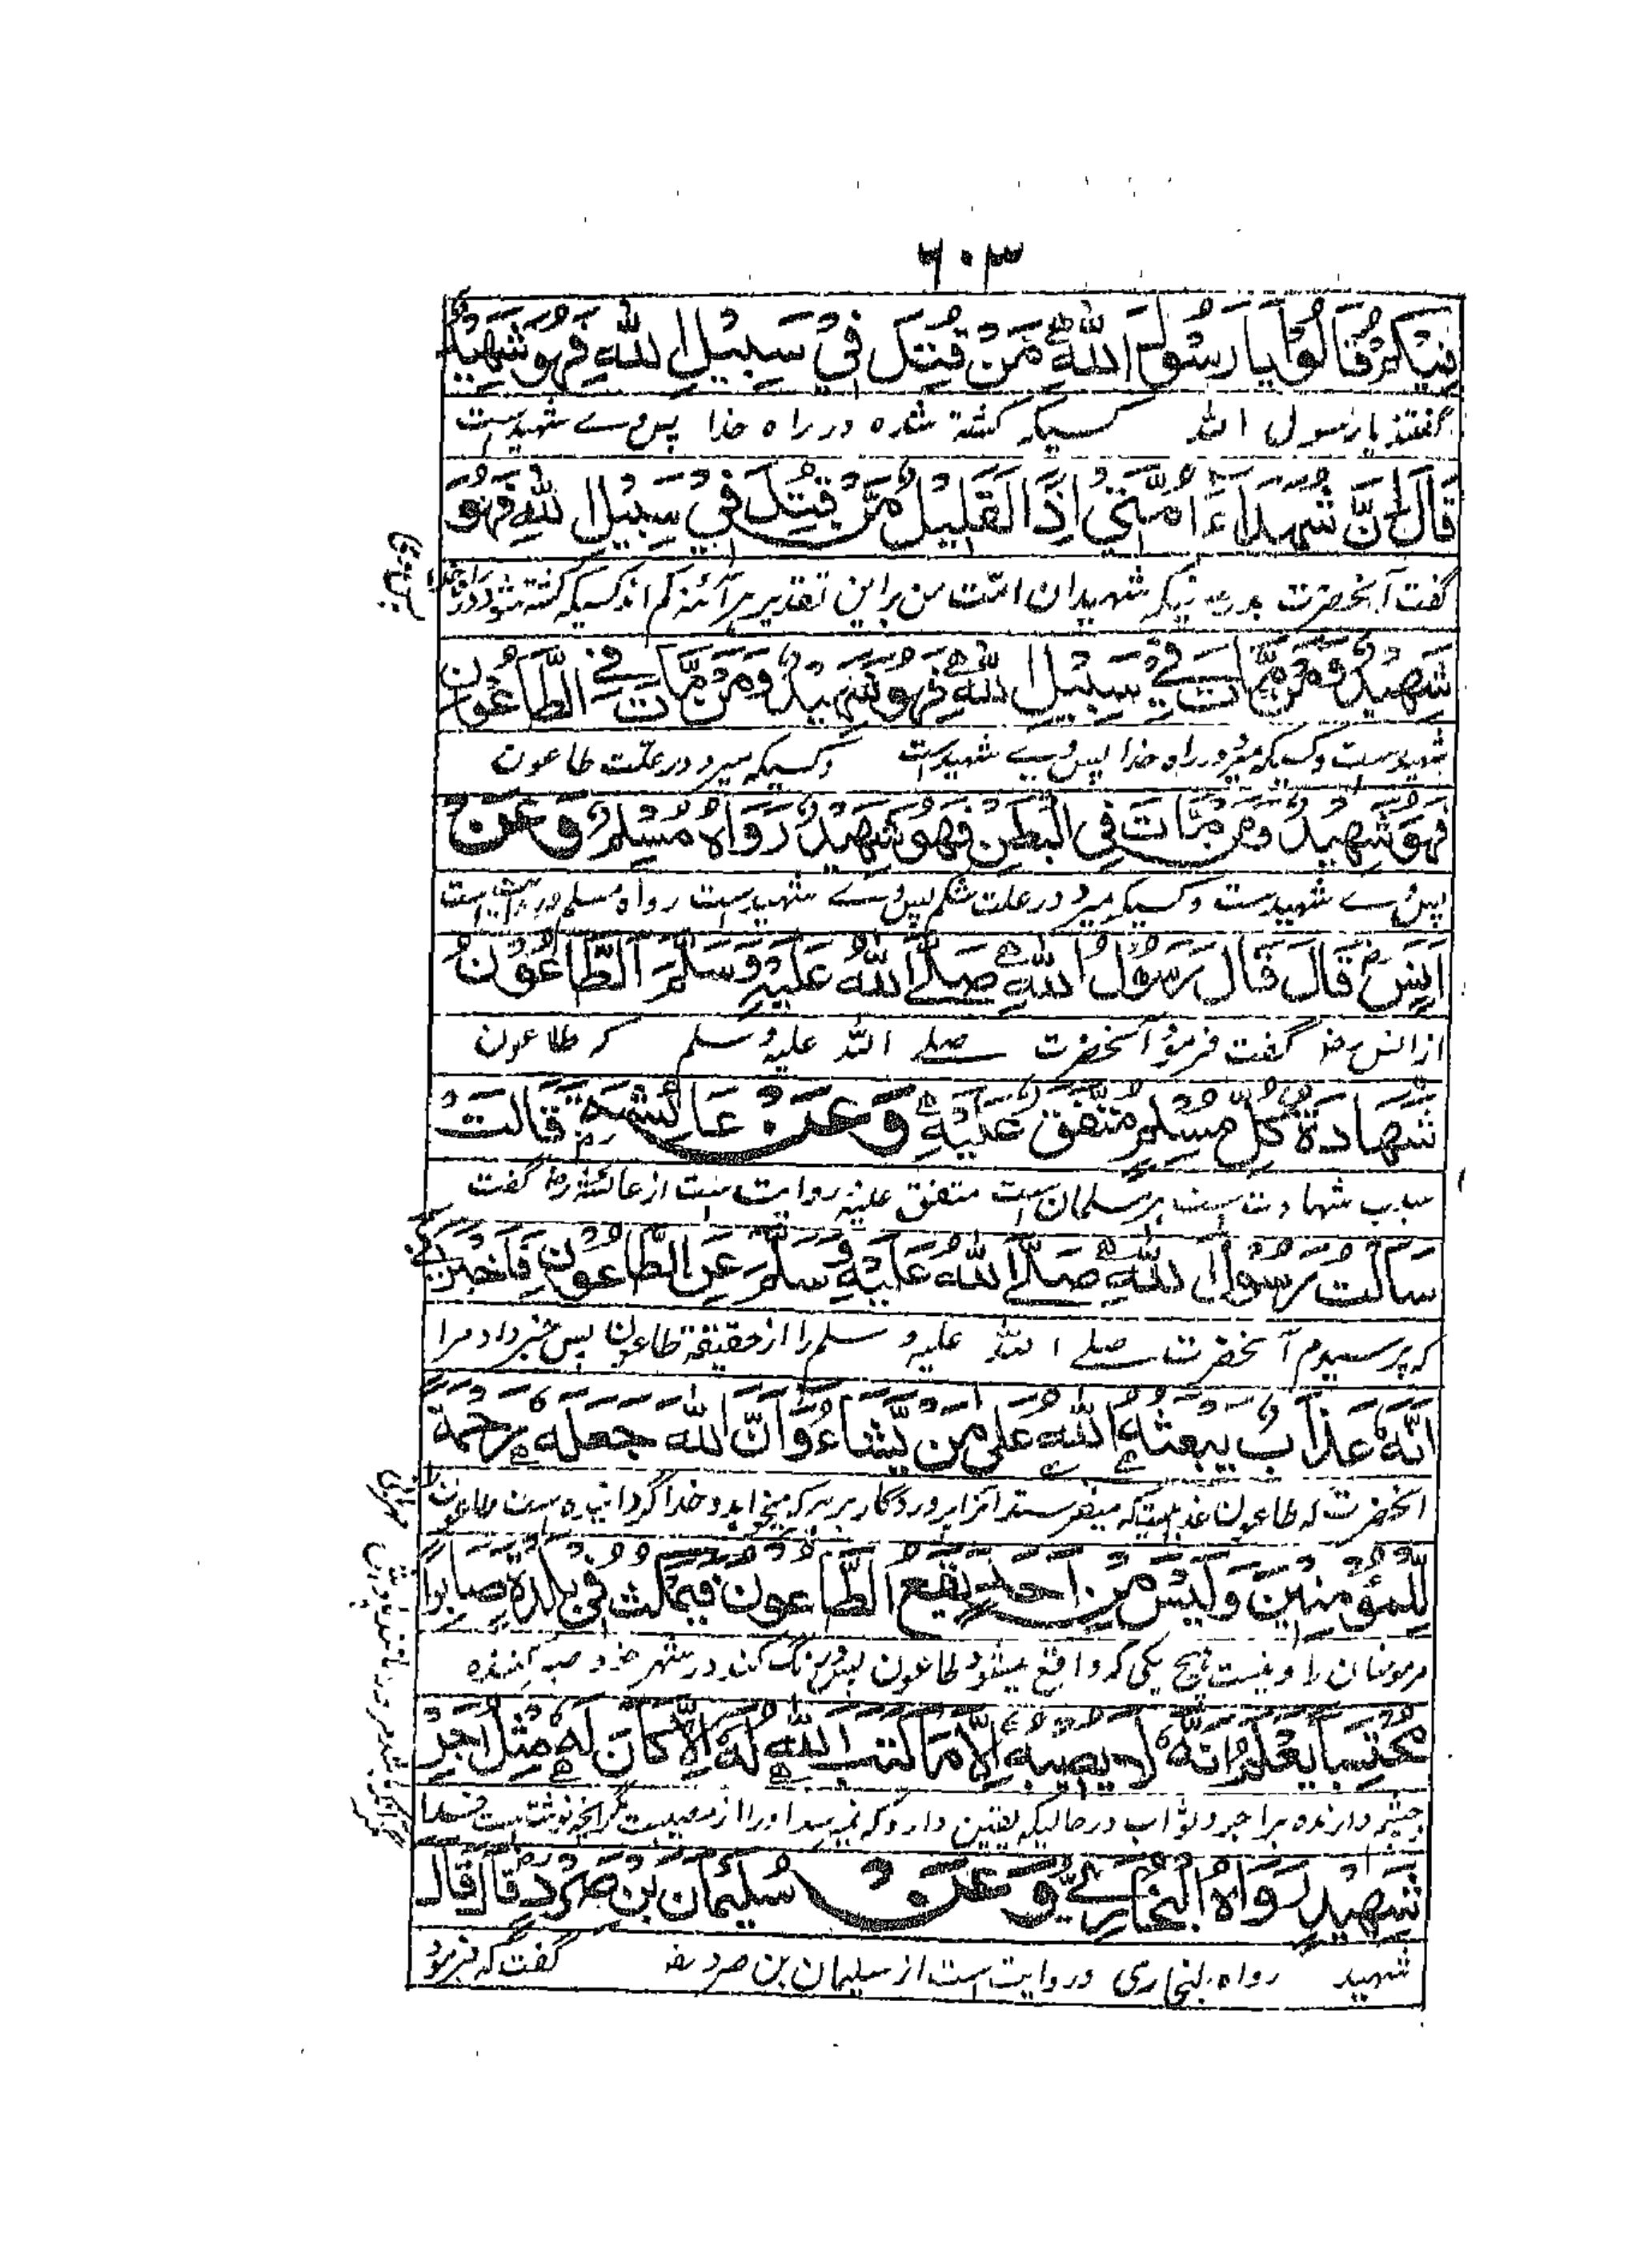 ٦٠٣
فِيْكُمْ قَالُوْا يَا رَسُوْلَ اللهِ مَنْ قُتِلَ فِيْ سَبِيْلِ اللهِ فَهُوَ شَهِيْدٌ
گفتند یا رسول الله کسیکه کشته شده در راه خدا پس وے شهید است
قَالَ اِنَّ شُهَدَاءَ اُمَّتِيْ اِذًا لَقَلِيْلٌ مَنْ قُتِلَ فِيْ سَبِيْلِ اللهِ فَهُوَ
گفت آنحضرت بدرستیکه شهیدان امت من براین تقدیر هر آئنه کم اند کسیکه کشته شود در راه خدا
شَهِيْدٌ وَمَنْ مَّاتَ فِيْ سَبِيْلِ اللهِ فَهُوَ شَهِيْدٌ وَمَنْ مَّاتَ فِي الطَّاعُوْنِ
شهید ست و کسیکه میرد در راه خدا پس وے شهید است و کسیکه میرد در علت طاعون
فَهُوَ شَهِيْدٌ وَمَنْ مَّاتَ فِي الْبَطْنِ فَهُوَ شَهِيْدٌ رَوَاهُ مُسْلِمٌ وَعَنْ
پس وے شهید ست و کسیکه میرد در علت شکم پس وے شهید ست رواه مسلم و روایت است
اَنَسٍ رض قَالَ قَالَ رَسُوْلُ اللهِ صَلَّے اللهُ عَلَيْهِ وَسَلَّمَ الطَّاعُوْنُ
از انس رض گفت فرمود آنحضرت صلے الله علیه و سلم که طاعون
شَهَادَةُ كُلِّ مُسْلِمٍ مُتَّفَقٌ عَلَيْهِ وَعَنْ عَائِشَةَ رض قَالَتْ
سبب شهادت ست هر مسلمان ست متفق علیه روایت ست از عائشه رض گفت
سَاَلْتُ رَسُوْلَ اللهِ صَلَّے اللهُ عَلَيْهِ وَسَلَّمَ عَنِ الطَّاعُوْنِ فَاَخْبَرَنِيْ
که پرسیدم آنحضرت صلے الله علیه و سلم را از حقیقة طاعون پس خبر داد مرا
اَنَّهُ عَذَابٌ يَبْعَثُهُ اللهُ عَلٰى مَنْ يَّشَاءُ وَاَنَّ اللهَ جَعَلَهُ رَحْمَةً
آنحضرت که طاعون عذابیست که میفرستد آنرا پروردگار بر هر که میخواهد و خدا گردانیده است طاعون را
لِّلْمُؤْمِنِيْنَ وَلَيْسَ مِنْ اَحَدٍ يَقَعُ الطَّاعُوْنُ فَيَمْكُثُ فِيْ بَلَدِهِ صَابِرًا
مر مومنان را و نیست هیچ یکی که واقع میشود طاعون پس درنگ کند در شهر خود صبر کننده
مُحْتَسِبًا يَعْلَمُ اَنَّهُ لَا يُصِيْبُهُ اِلَّا مَا كَتَبَ اللهُ لَهُ اِلَّا كَانَ لَهُ مِثْلُ اَجْرِ
چشم دارنده بر اجر و ثواب در حالیکه یقین دارد که نمیرسد او را از مصیبت مگر آنچه نوشته ست خدا
شَهِيْدٍ رَوَاهُ الْبُخَارِيُّ وَعَنْ سُلَيْمَانَ بْنِ صُرَدٍ رض قَالَ قَالَ
شهید رواه بخاری و روایت است از سلیمان بن صرد رض گفت که فرمود